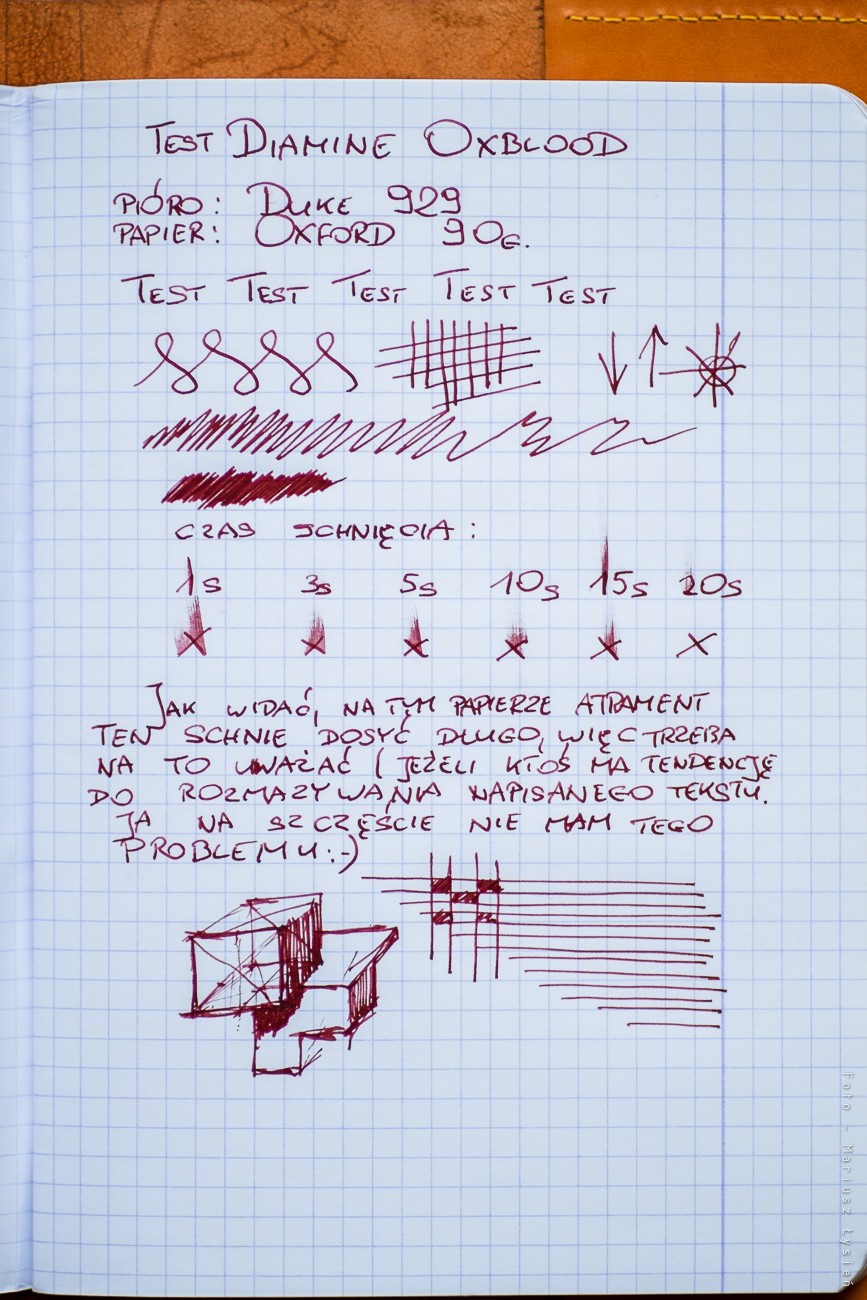 TEST DIAMINE OXBLOOD
PIÓRO: DUKE 929
PAPIER: OXFORD 90G.
TEST TEST TEST TEST TEST
CZAS SCHNIĘCIA:
1s 3s 5s 10s 15s 20s
JAK WIDAĆ, NA TYM PAPIERZE ATRAMENT
TEN SCHNIE DOSYĆ DŁUGO, WIĘC TRZEBA
NA TO UWAŻAĆ (JEŻELI KTOŚ MA TENDENCJĘ
DO ROZMAZYWANIA NAPISANEGO TEKSTU.
JA NA SZCZĘŚCIE NIE MAM TEGO
PROBLEMU :-)
Foto - Mariusz Łysień